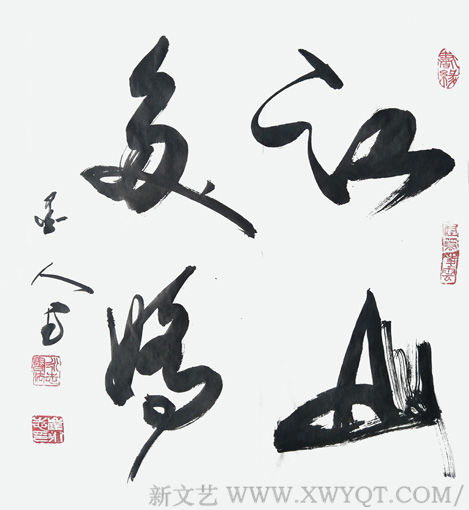 江山
多娇
墨人书
新文艺 WWW.XWYQT.COM/